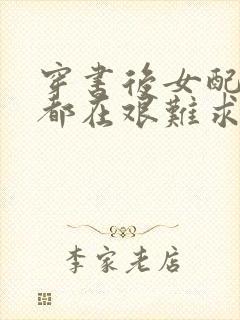 穿書後女配
都在艱難求
李家老店